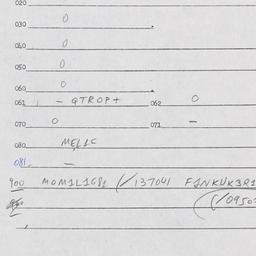 020
030 0
040 0
050 0
060 0
061 - GTROP+ 062 0
070 0 071 -
080 MEL1C
081 -
900 MOM1L1G81 (/137041 F1NKUK3R1
(/0950